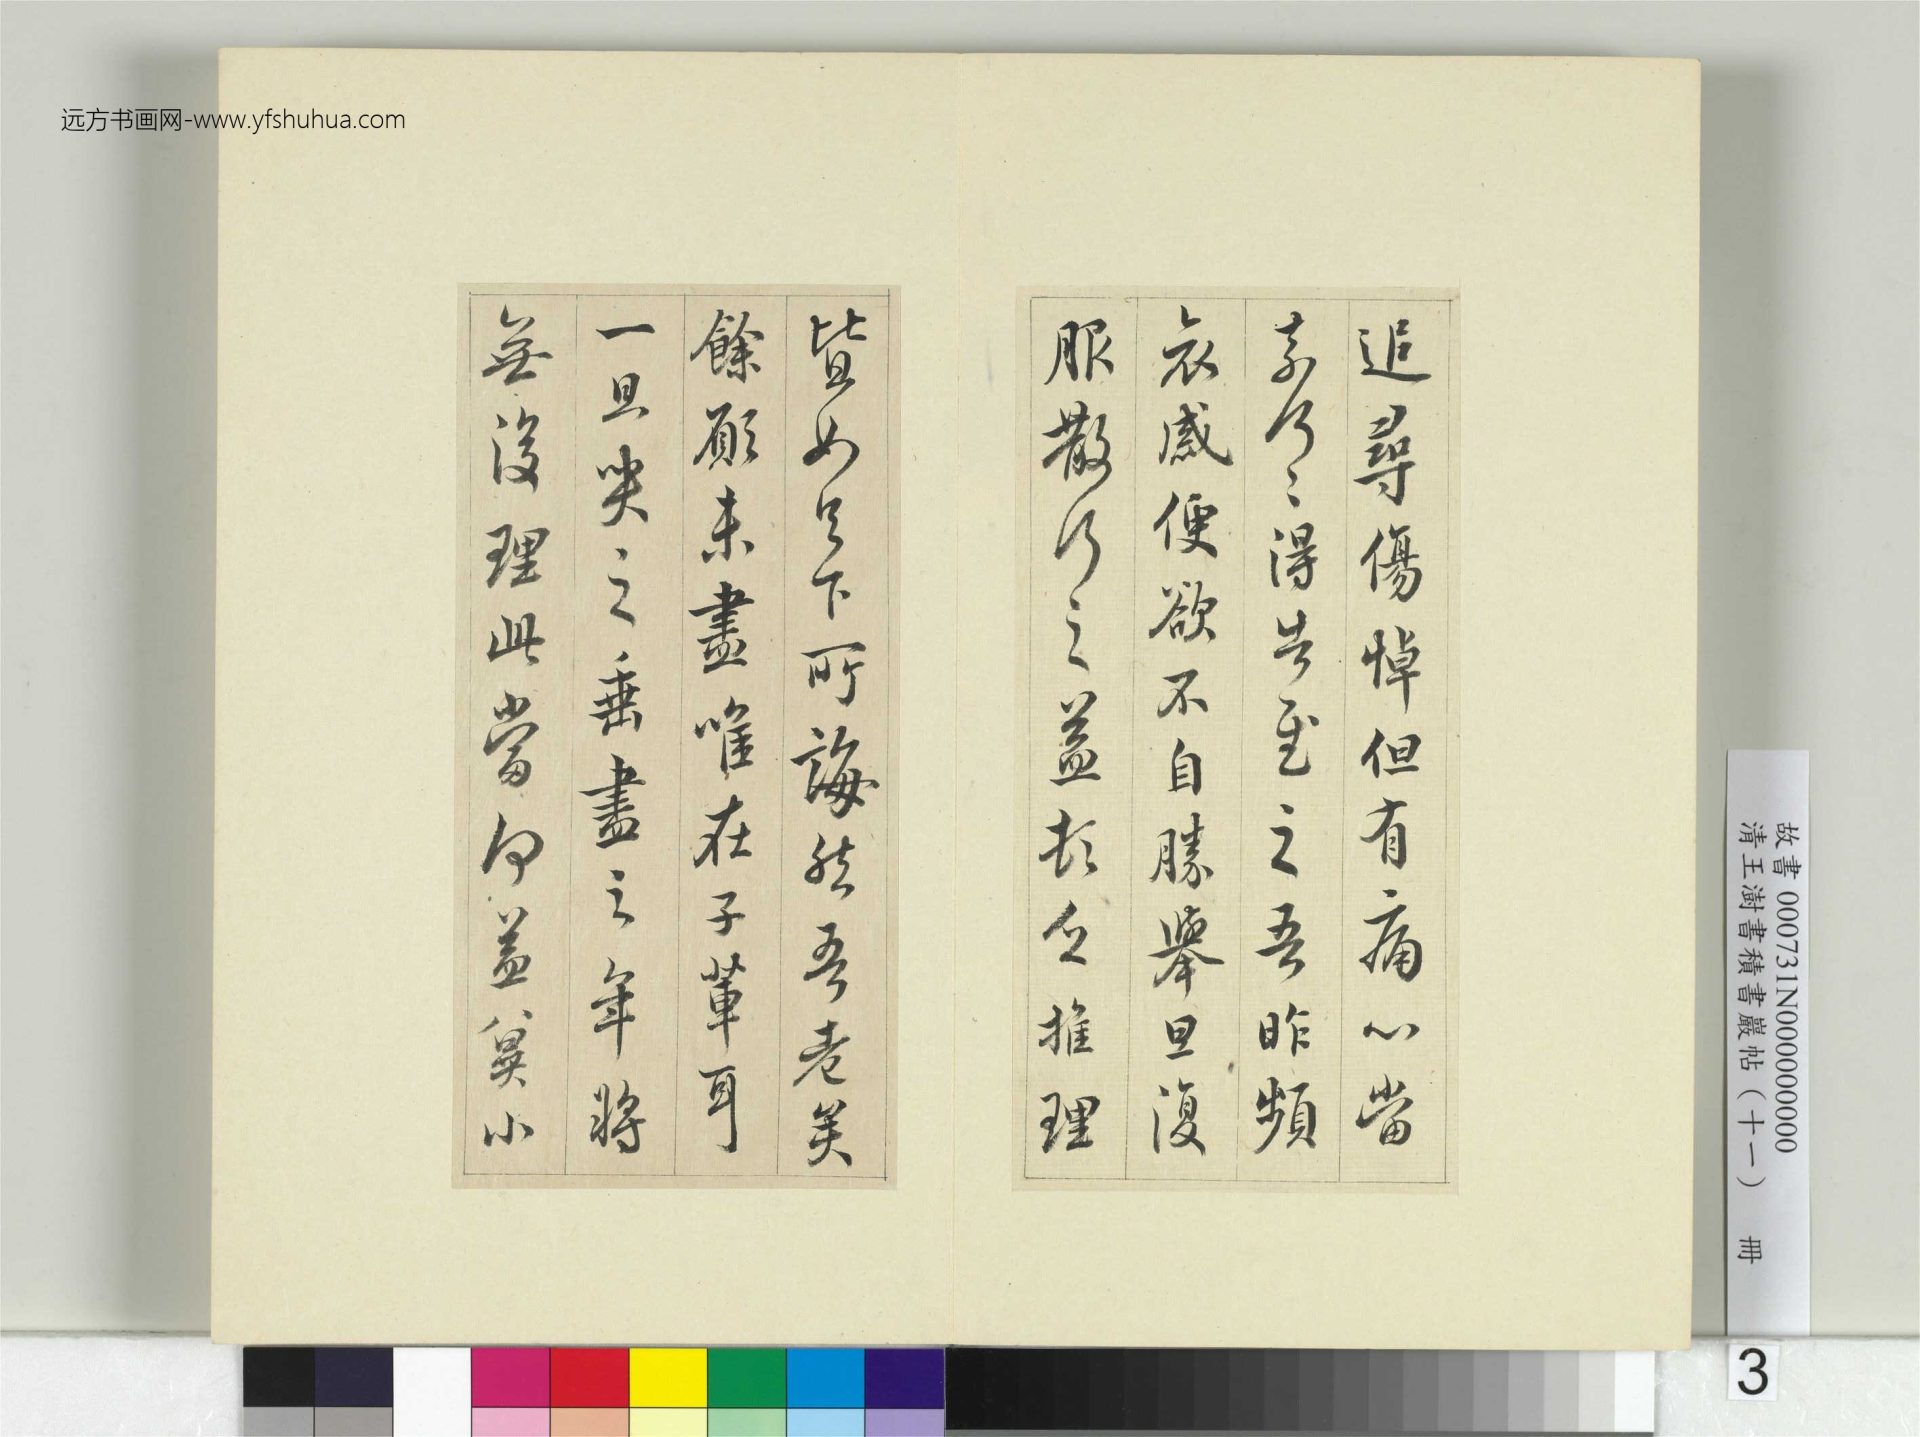 远方书画网-www.yfshuhua.com
追尋傷悼但有痛心當
奈何〻得告慰之吾昨頻
哀感便欲不自勝舉旦復
服散行之益頓乏推理
皆如足下所誨然吾老矣
餘願未盡唯在子輩耳
一旦哭之垂盡之年將
無復理此當何益冀小
故書 000731N000000000
清王澍書積書巖帖（十一） 冊
3